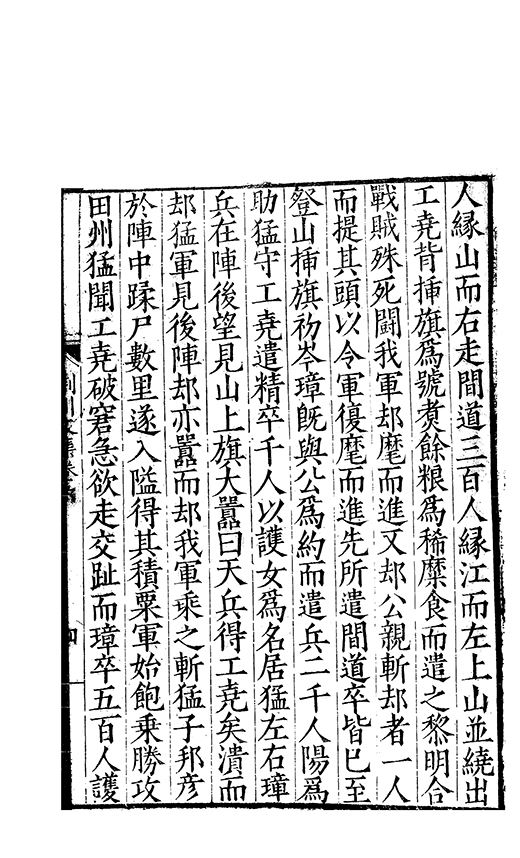 人縁山而右走間道三百人縁江而左上山並繞出
工堯背揷旗爲號煑餘粮爲稀糜食而遣之黎明合
戰賊殊死鬪我軍却麾而進又却公親斬却者一人
而提其頭以令軍復麾而進先所遣間道卒皆已至
登山揷旗初岑璋旣與公爲約而遣兵二千人陽爲
助猛守工堯遣精卒千人以護女爲名居猛左右璋
兵在陣後望見山上旗大囂曰天兵得工堯矣潰而
却猛軍見後陣却亦囂而却我軍乘之斬猛子邦彦
於陣中蹂尸數里遂入隘得其積粟軍始飽乘勝攻
田州猛聞工堯破窘急欲走交趾而璋卒五百人護
荆川文集卷
四